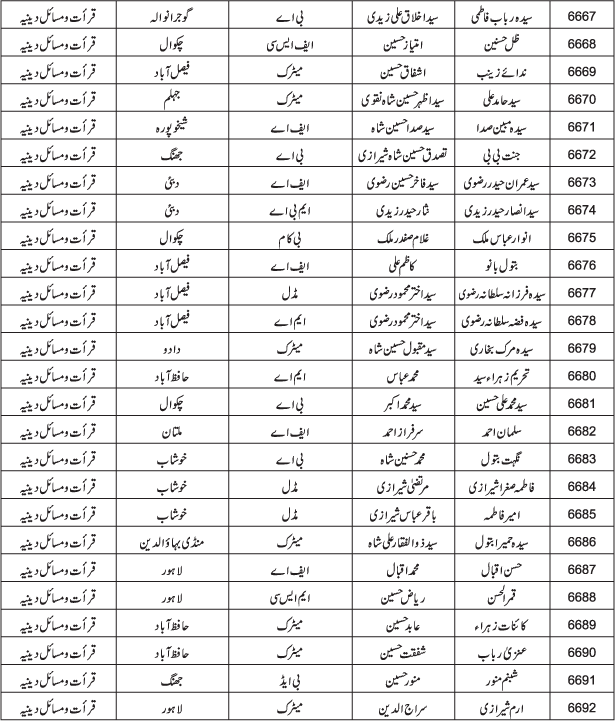 6667 سیدہ رباب فاطمی سید اخلاق علی زیدی بی اے گوجرانوالہ قرأت و مسائل دینیہ
6668 ظل حسنین امتیاز حسین ایف ایس سی چکوال قرأت و مسائل دینیہ
6669 ندائے زینب اشفاق حسین میٹرک فیصل آباد قرأت و مسائل دینیہ
6670 سید حامد علی سید اظہر حسین شاہ نقوی میٹرک جہلم قرأت و مسائل دینیہ
6671 سیدہ مبین صدا سید صدا حسین شاہ ایف اے شیخوپورہ قرأت و مسائل دینیہ
6672 جنت بی بی تصدق حسین شاہ شیرازی بی اے جھنگ قرأت و مسائل دینیہ
6673 سید عمران حیدر رضوی سید فاخر حسین رضوی ایف اے دبئی قرأت و مسائل دینیہ
6674 سید انصار حیدر زیدی نثار حیدر زیدی ایم بی اے دبئی قرأت و مسائل دینیہ
6675 انوار عباس ملک غلام صفدر ملک بی کام چکوال قرأت و مسائل دینیہ
6676 بتول بانو کاظم علی ایف اے فیصل آباد قرأت و مسائل دینیہ
6677 سیدہ فرزانہ سلطانہ رضوی سید اختر محمود رضوی مڈل فیصل آباد قرأت و مسائل دینیہ
6678 سیدہ فضہ سلطانہ رضوی سید اختر محمود رضوی ایم اے فیصل آباد قرأت و مسائل دینیہ
6679 سیدہ مرک بخاری سید مقبول حسین شاہ میٹرک دادو قرأت و مسائل دینیہ
6680 تحریم زہراء سید محمد عباس ایم اے حافظ آباد قرأت و مسائل دینیہ
6681 سید محمد علی حسین سید محمد اکبر بی اے چکوال قرأت و مسائل دینیہ
6682 سلمان احمد سرفراز احمد ایف اے ملتان قرأت و مسائل دینیہ
6683 نگہت بتول محمد حسنین شاہ بی اے خوشاب قرأت و مسائل دینیہ
6684 فاطمہ صغرا شیرازی مرتضیٰ شیرازی مڈل خوشاب قرأت و مسائل دینیہ
6685 امیر فاطمہ باقر عباس شیرازی مڈل خوشاب قرأت و مسائل دینیہ
6686 سیدہ حمیرا بتول سید ذوالفقار علی شاہ میٹرک منڈی بہاؤالدین قرأت و مسائل دینیہ
6687 حسن اقبال محمد اقبال ایف اے لاہور قرأت و مسائل دینیہ
6688 قمر الحسن ریاض حسین ایم ایس سی لاہور قرأت و مسائل دینیہ
6689 کائنات زہراء عابد حسین میٹرک حافظ آباد قرأت و مسائل دینیہ
6690 عنزیٰ رباب شفقت حسین میٹرک حافظ آباد قرأت و مسائل دینیہ
6691 شبنم منور منور حسین بی ایڈ جھنگ قرأت و مسائل دینیہ
6692 ارم شیرازی سراج الدین میٹرک لاہور قرأت و مسائل دینیہ